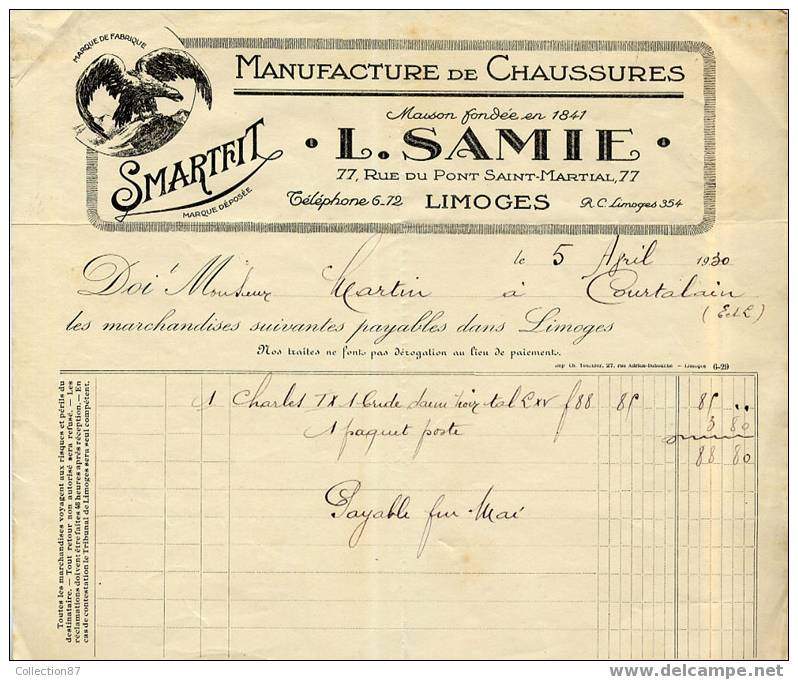 MARQUE DE FABRIQUE
SMARTFIT
MARQUE DÉPOSÉE
MANUFACTURE DE CHAUSSURES
Maison fondée en 1841
L. SAMIE
77, RUE DU PONT SAINT-MARTIAL, 77
Téléphone 6-72 LIMOGES R.C. Limoges 354
le 5 April 1930
Doit Monsieur Martin à Courtalain
(E et L)
les marchandises suivantes payables dans Limoges
Nos traites ne font pas dérogation au lieu de paiement.
Imp Ch. 27, rue Adrien-Dubouché — Limoges 6-29
1 Charles IX 1 Bride daim noir tal LXV f88 85 85 ..
1 paquet poste 3 80
88 80
Payable fin Mai
Toutes les marchandises voyagent aux risques et périls du
destinataire. — Tout retour non autorisé sera refusé. — Les
réclamations doivent être faites 48 heures après réception. — En
cas de contestation le Tribunal de Limoges sera seul compétent.
Collection87
delcampe.net